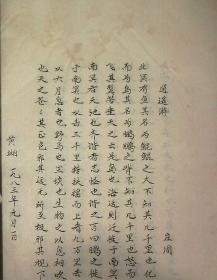 逍遥游
庄周
北冥有魚其名為鯤鯤之大不知其几千里也化
而為鳥其名為鵬鵬之背不知其几千里也怒而
飛其翼若垂天之云是鳥也海运則將徙于南冥
南冥者天池也齐諧者志怪者也諧之言曰鵬之徙
于南冥也水击三千里摶扶搖而上者九万里去
以六月息者也野馬也尘埃也生物之以息相吹
也天之苍苍其正色邪其远而无所至极邪其視下
一九八三年九月一日